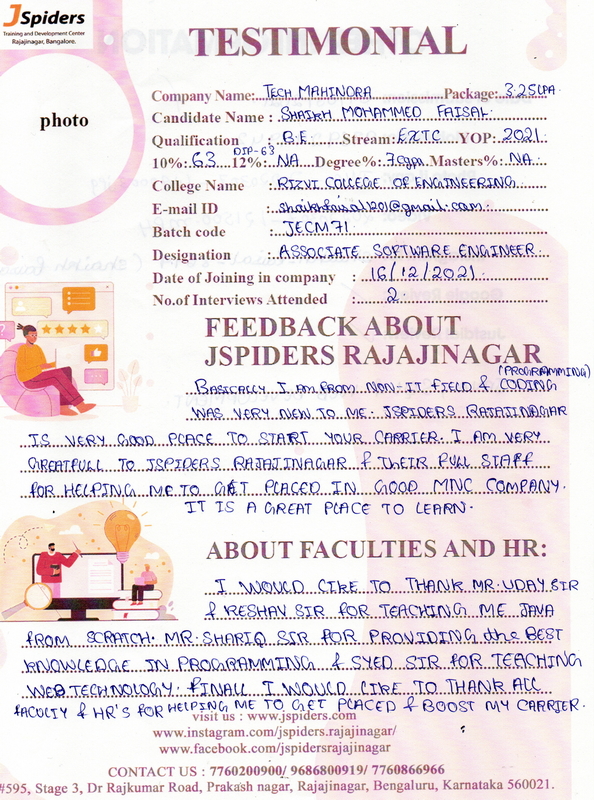 JSpiders
Training and Development Center
Rajajinagar, Bangalore.
TESTIMONIAL
photo
Company Name: TECH MAHINDRA Package: 3.25LPA
Candidate Name : SHAIKH MOHAMMED FAISAL.
Qualification : B.E Stream: EXTC YOP: 2021
10%: 63 DIP-63 12%: NA Degree%: 7cgpa Masters%: NA.
College Name : RIZVI COLLEGE OF ENGINEERING
E-mail ID : shaikhfaisal1201@gmail.com.
Batch code : JECM71
Designation : ASSOCIATE SOFTWARE ENGINEER
Date of Joining in company : 16/12/2021.
No.of Interviews Attended : 2.
FEEDBACK ABOUT
JSPIDERS RAJAJINAGAR
(PROGRAMMING)
BASICALLY I AM FROM NON-IT FIELD & CODING
WAS VERY NEW TO ME. JSPIDERS RAJAJINAGAR
IS VERY GOOD PLACE TO START YOUR CARRIER. I AM VERY
GREATFULL TO JSPIDERS RAJAJINAGAR & THEIR FULL STAFF
FOR HELPING ME TO GET PLACED IN GOOD MNC COMPANY.
IT IS A GREAT PLACE TO LEARN.
ABOUT FACULTIES AND HR:
I WOULD LIKE TO THANK MR. UDAY SIR
& KESHAV SIR FOR TEACHING ME JAVA
FROM SCRATCH. MR. SHARIQ SIR FOR PROVIDING the BEST
KNOWLEDGE IN PROGRAMMING & SYED SIR FOR TEACHING
WEB TECHNOLOGY. FINALL I WOULD LIKE TO THANK ALL
FACULTY & HR'S FOR HELPING ME TO GET PLACED & BOOST MY CARRIER.
visit us : www.jspiders.com
www.instagram.com/jspiders.rajajinagar/
www.facebook.com/jspidersrajajinagar
CONTACT US : 7760200900/ 9686800919/ 7760866966
#595, Stage 3, Dr Rajkumar Road, Prakash nagar, Rajajinagar, Bengaluru, Karnataka 560021.